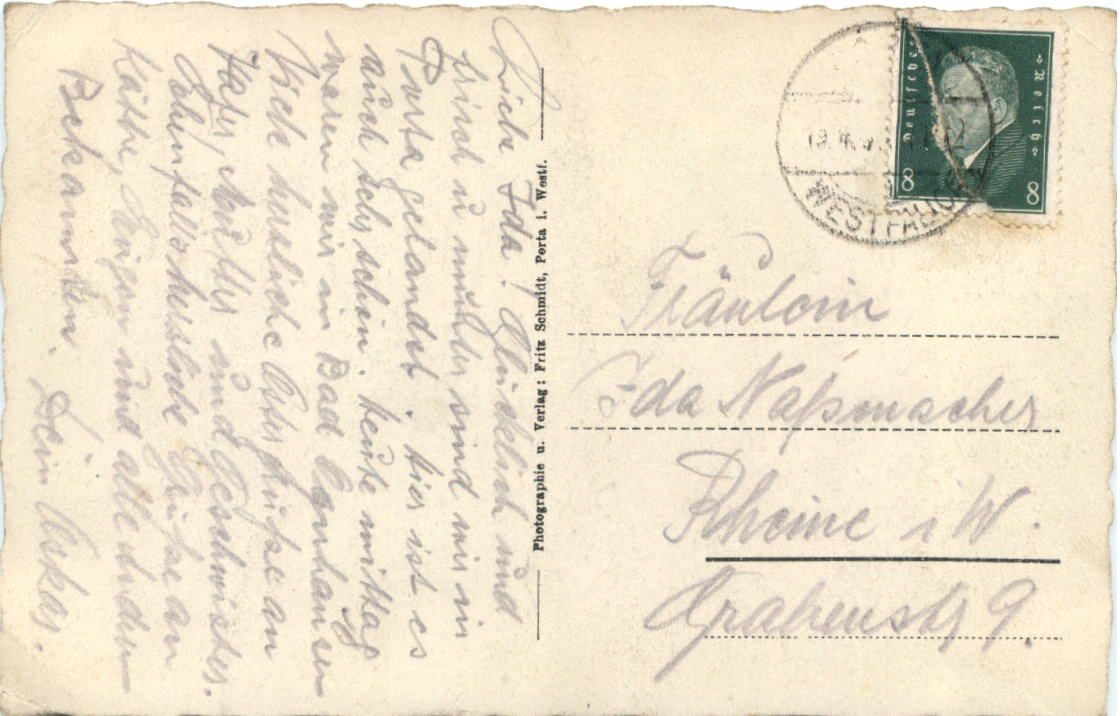 Liebe Ida! Glücklich und
frisch u munter sind wir in
Porta gelandet. hier ist es
auch sehr schön. heute mittag
waren wir in Bad Oeynhausen
Viele herzliche Ostergrüße an
Vater, Mutter und Geschwister.
Ebenfalls herzliche Grüße an
Käthe, Eugen und alle andern
Bekannten. Dein Oskar.
Photographie u. Verlag: Fritz Schmidt, Porta i. Westf.
Deutsches Reich
8 8
WESTFALICA
Fräulein
Ida Naßmacher
Rheine i W.
Grabenstr 9.